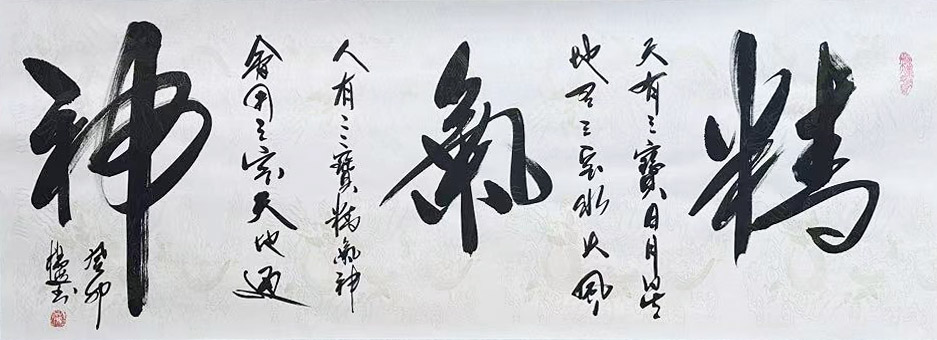 精
天有三寶日月星
地有三宝水火風
氣
人有三寶精氣神
會用三宝天地通
神
癸卯